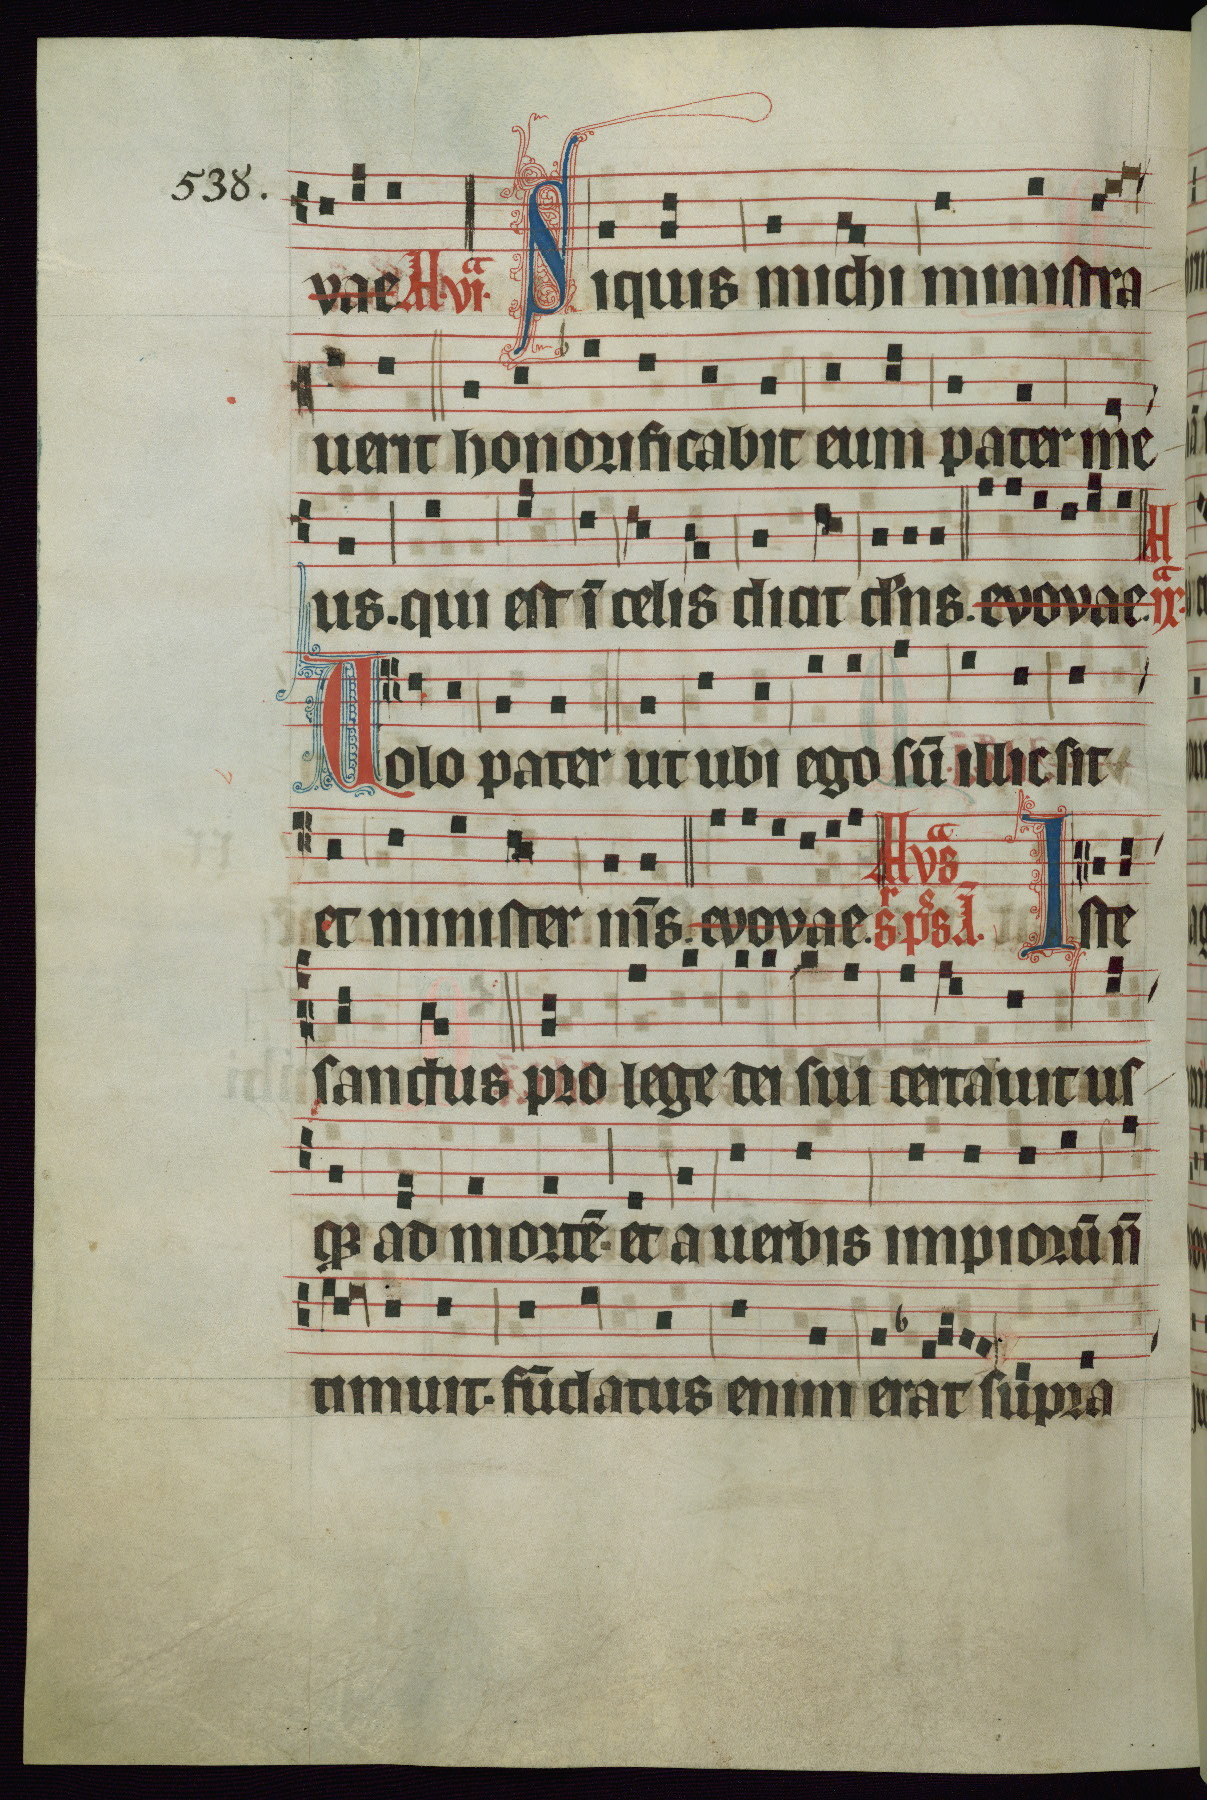 538.
vae A. vi.ᵃ Siquis michi ministra
uerit honorificabit eum pater me
us. qui est ī celis dicit dn̄s. evovae. A ix.ᵃ
Uolo pater ut ubi ego sū illic sit
et minister m̄s. evovae. Iste
sanctus pro lege dei sui certauit us
qȝ ad mortē. et a uerbis impiorū n̄
timuit. fūdatus enim erat supra